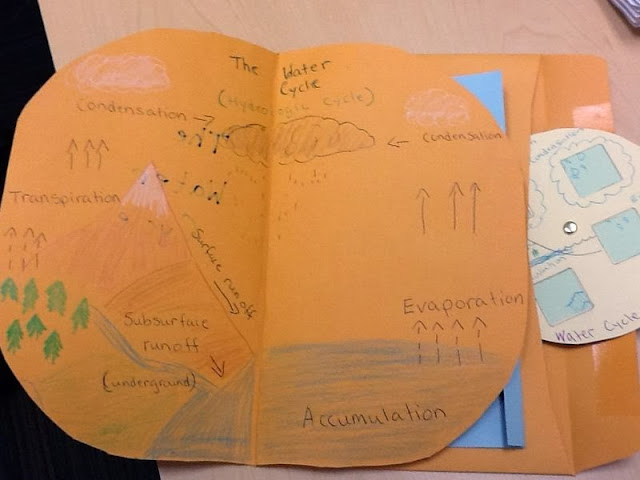 The Water
Cycle
(Hydrologic Cycle)
Condensation
Condensation
Transpiration
Surface runoff
Evaporation
Subsurface
runoff
(underground)
Accumulation
Water Cycle